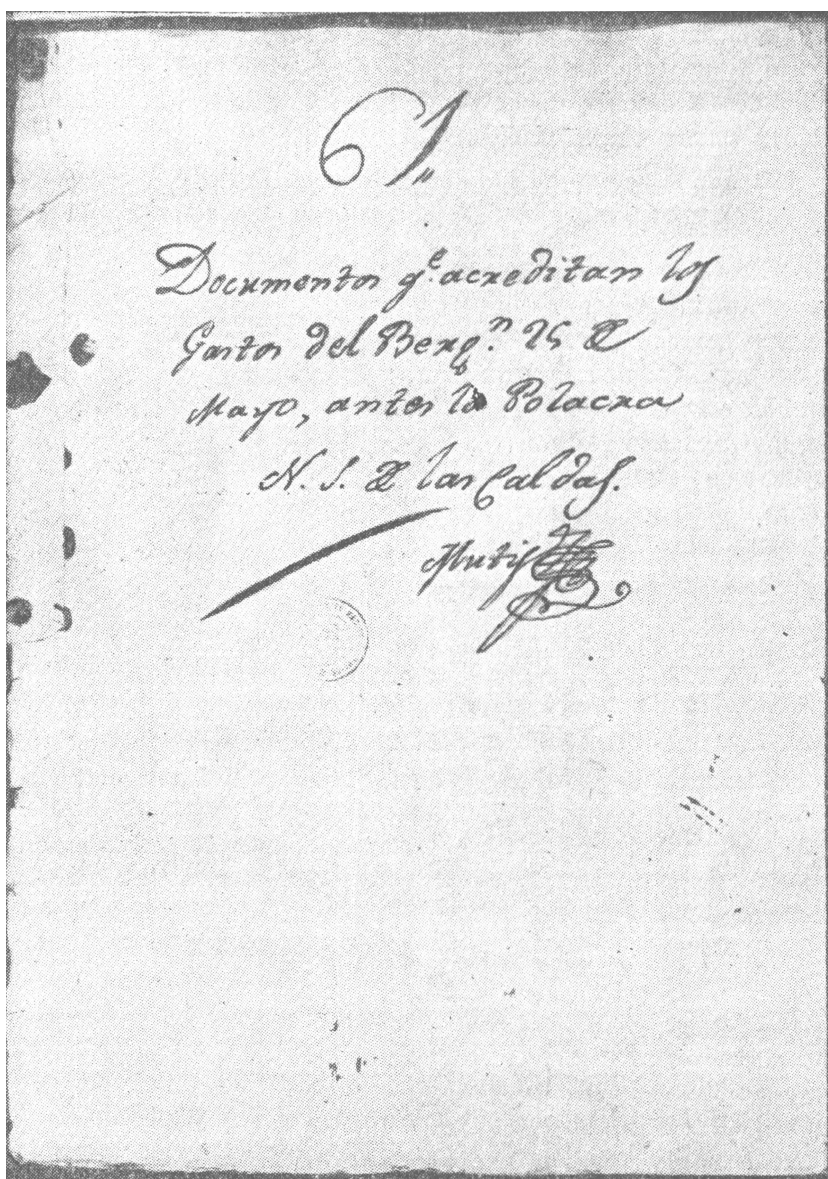 61„
Documentos q.e acreditan los
Gastos del Berg.n 25 de
Mayo, antes la Polacra
N. S. de las Caldas.
Mutis